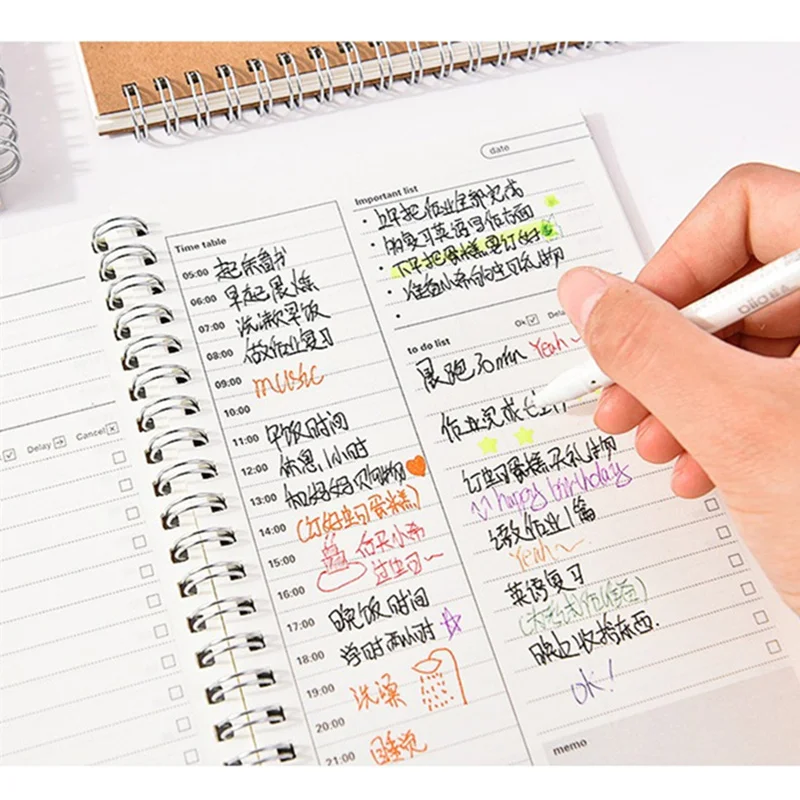 Delay
Cancel
Time table
05:00 起床看书
06:00 早起晨练
07:00 洗漱吃早饭
08:00 做作业复习
09:00 music
10:00
11:00 午饭时间
12:00 休息1小时
13:00 和好好买问物
14:00 (订好生日蛋糕)
15:00 给小希
16:00 过生日~
17:00 晚饭时间
18:00 学时两小时
19:00 洗澡
20:00
21:00 睡觉
date
Important list
上午把作业全部完成
复习英语写作方面
下午把蛋糕要订好
准备小希的生日礼物
Ok
to do list
晨跑30min Yeah~
作业完成
订生日蛋糕买礼物
happy birthday
语文作业1篇
Yeah~
英语复习
晚上收拾东西.
ok!
memo